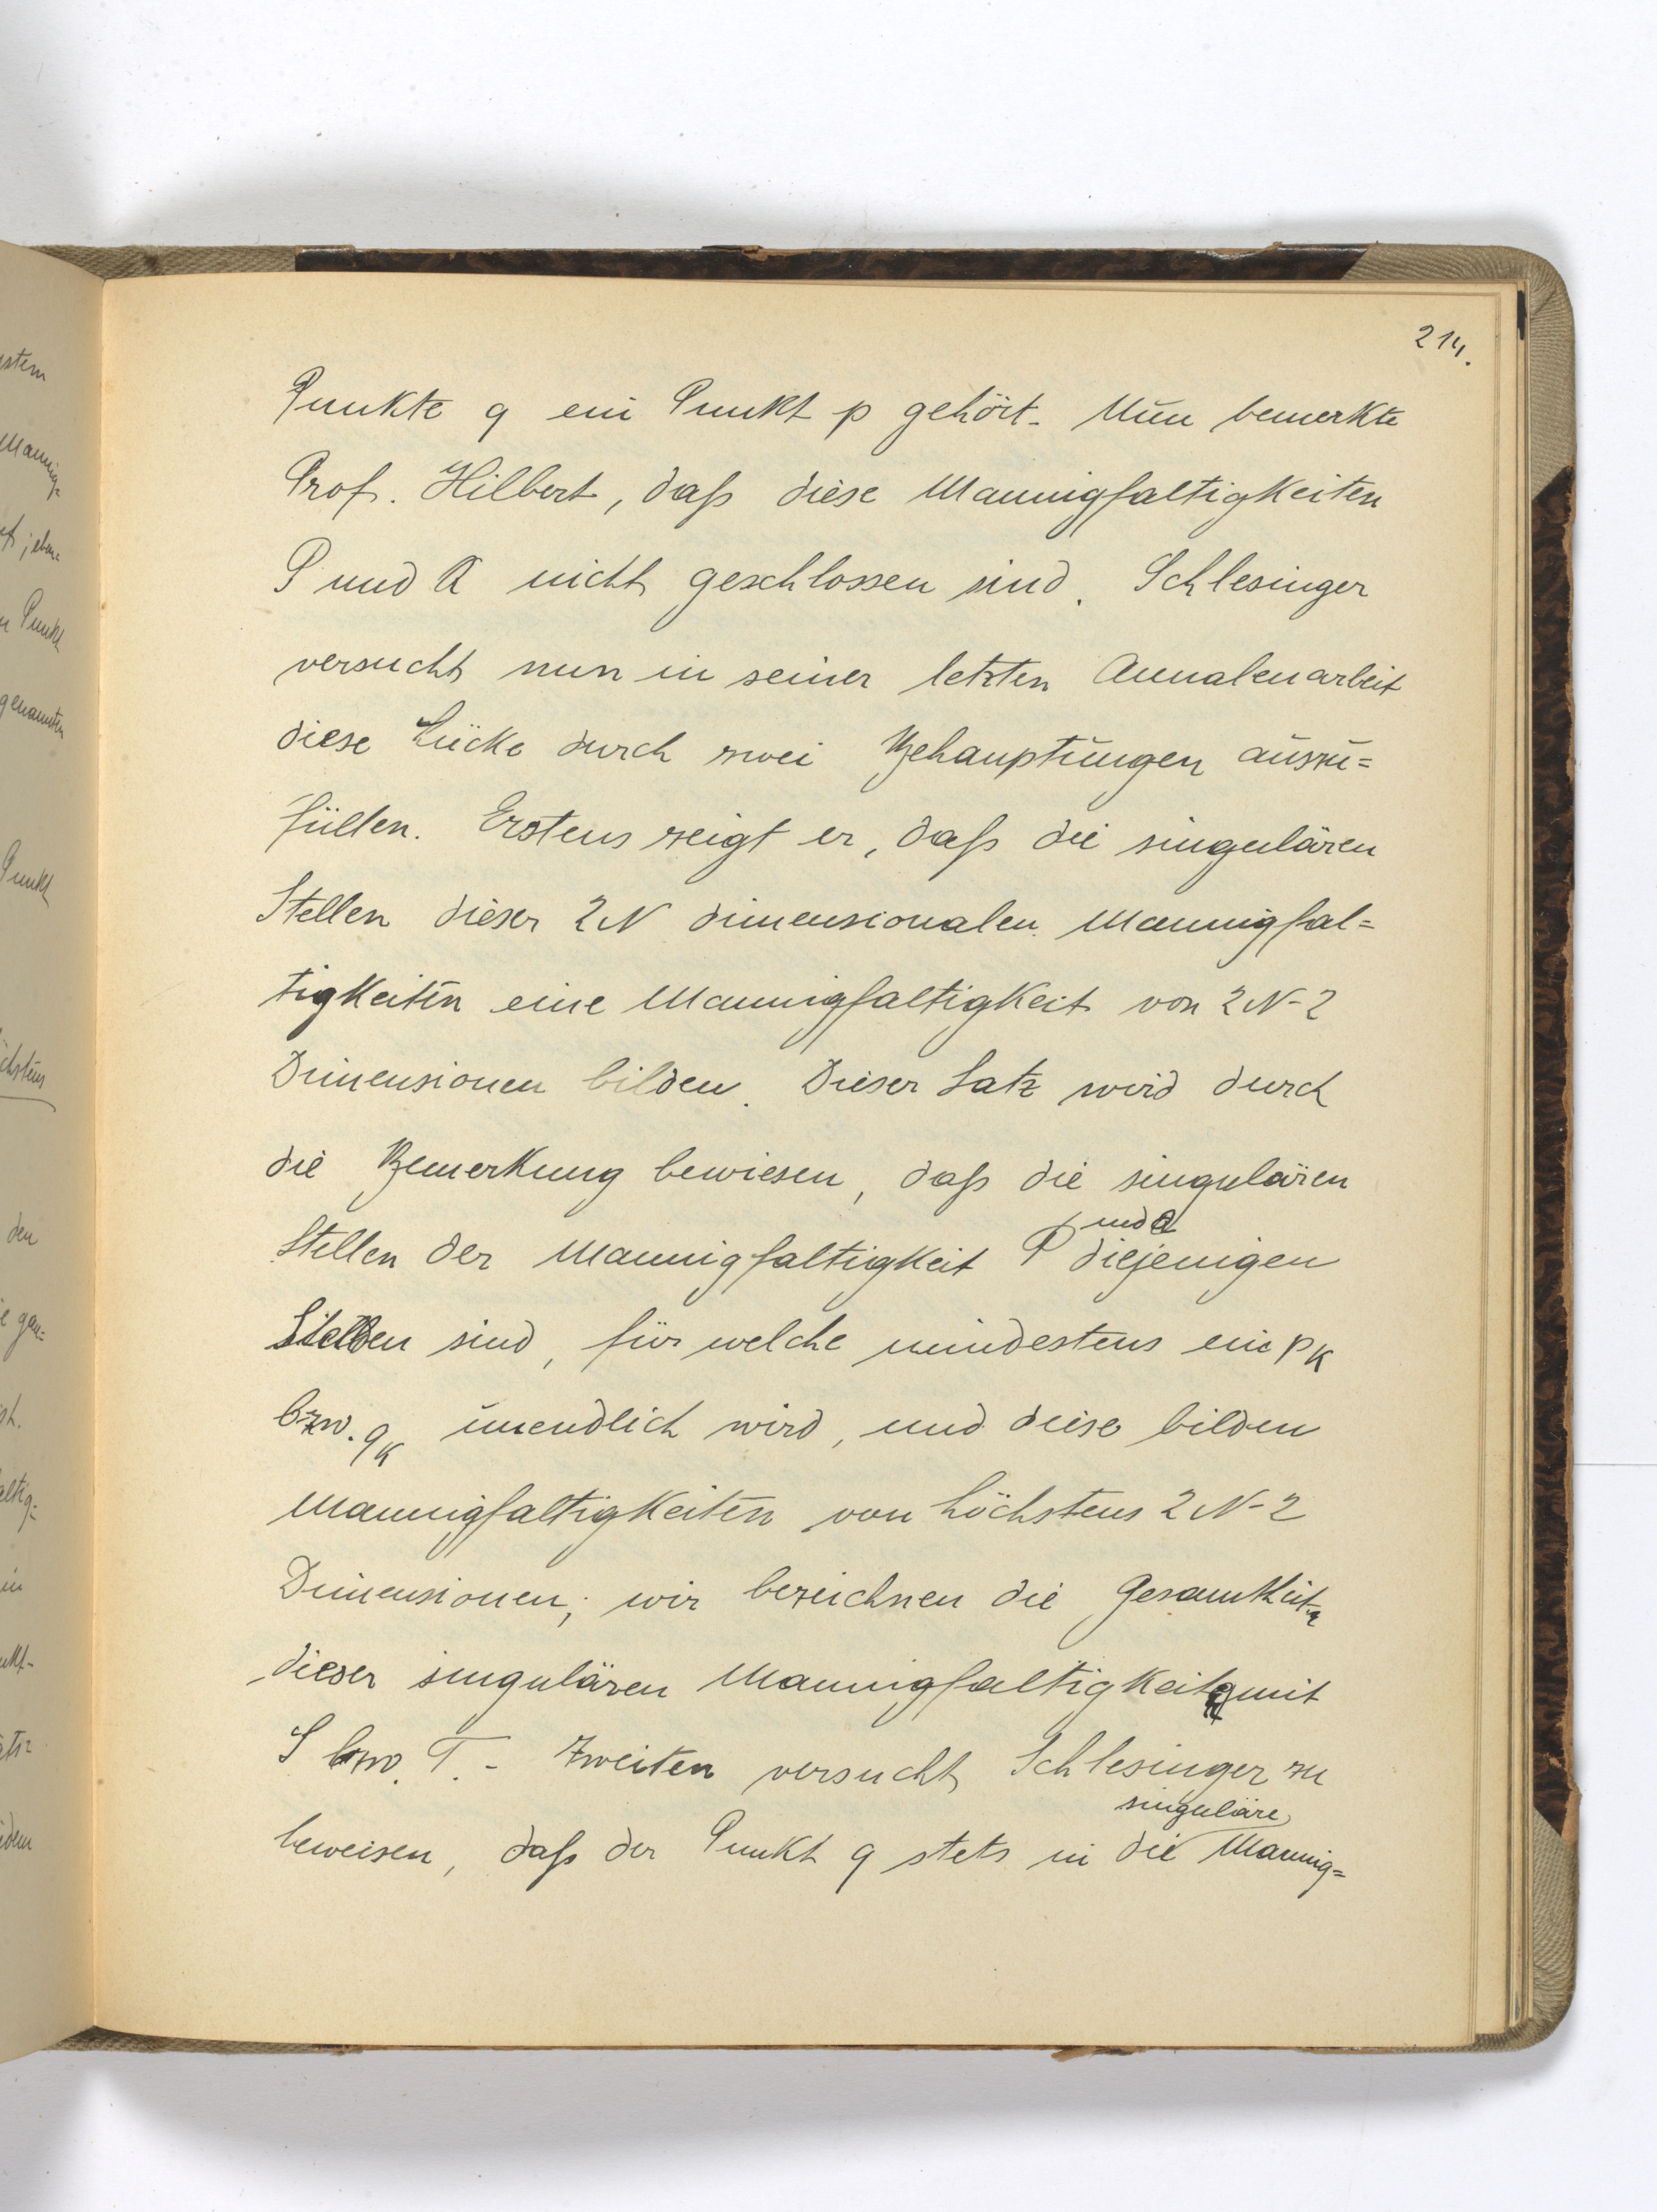 214.
Punkte q ein Punkt p gehört. Nun bemerkte
Prof. Hilbert, daß diese Mannigfaltigkeiten
P und Q nicht geschlossen sind. Schlesinger
versucht nun in seiner letzten Annalenarbeit
diese Lücke durch zwei Behauptungen auszu=
füllen. Erstens zeigt er, daß die singulären
Stellen dieser 2N dimensionalen Mannigfal=
tigkeiten eine Mannigfaltigkeit von 2N-2
Dimensionen bilden. Dieser Satz wird durch
die Bemerkung bewiesen, daß die singulären
und Q
Stellen der Mannigfaltigkeit P diejenigen
Stellen sind, für welche mindestens ein pK
bzw. qK unendlich wird, und diese bilden
Mannigfaltigkeiten von höchstens 2N-2
Dimensionen; wir bezeichnen die Gesamtheiten
dieser singulären Mannigfaltigkeiten mit
S bzw. T. - Zweiten versucht Schlesinger zu
singuläre
beweisen, daß der Punkt q stets in die Mannig=
ystem
Mannig=
; eben=
Punkt
genannten
Punkt
höchstens
den
gan=
altig=
in